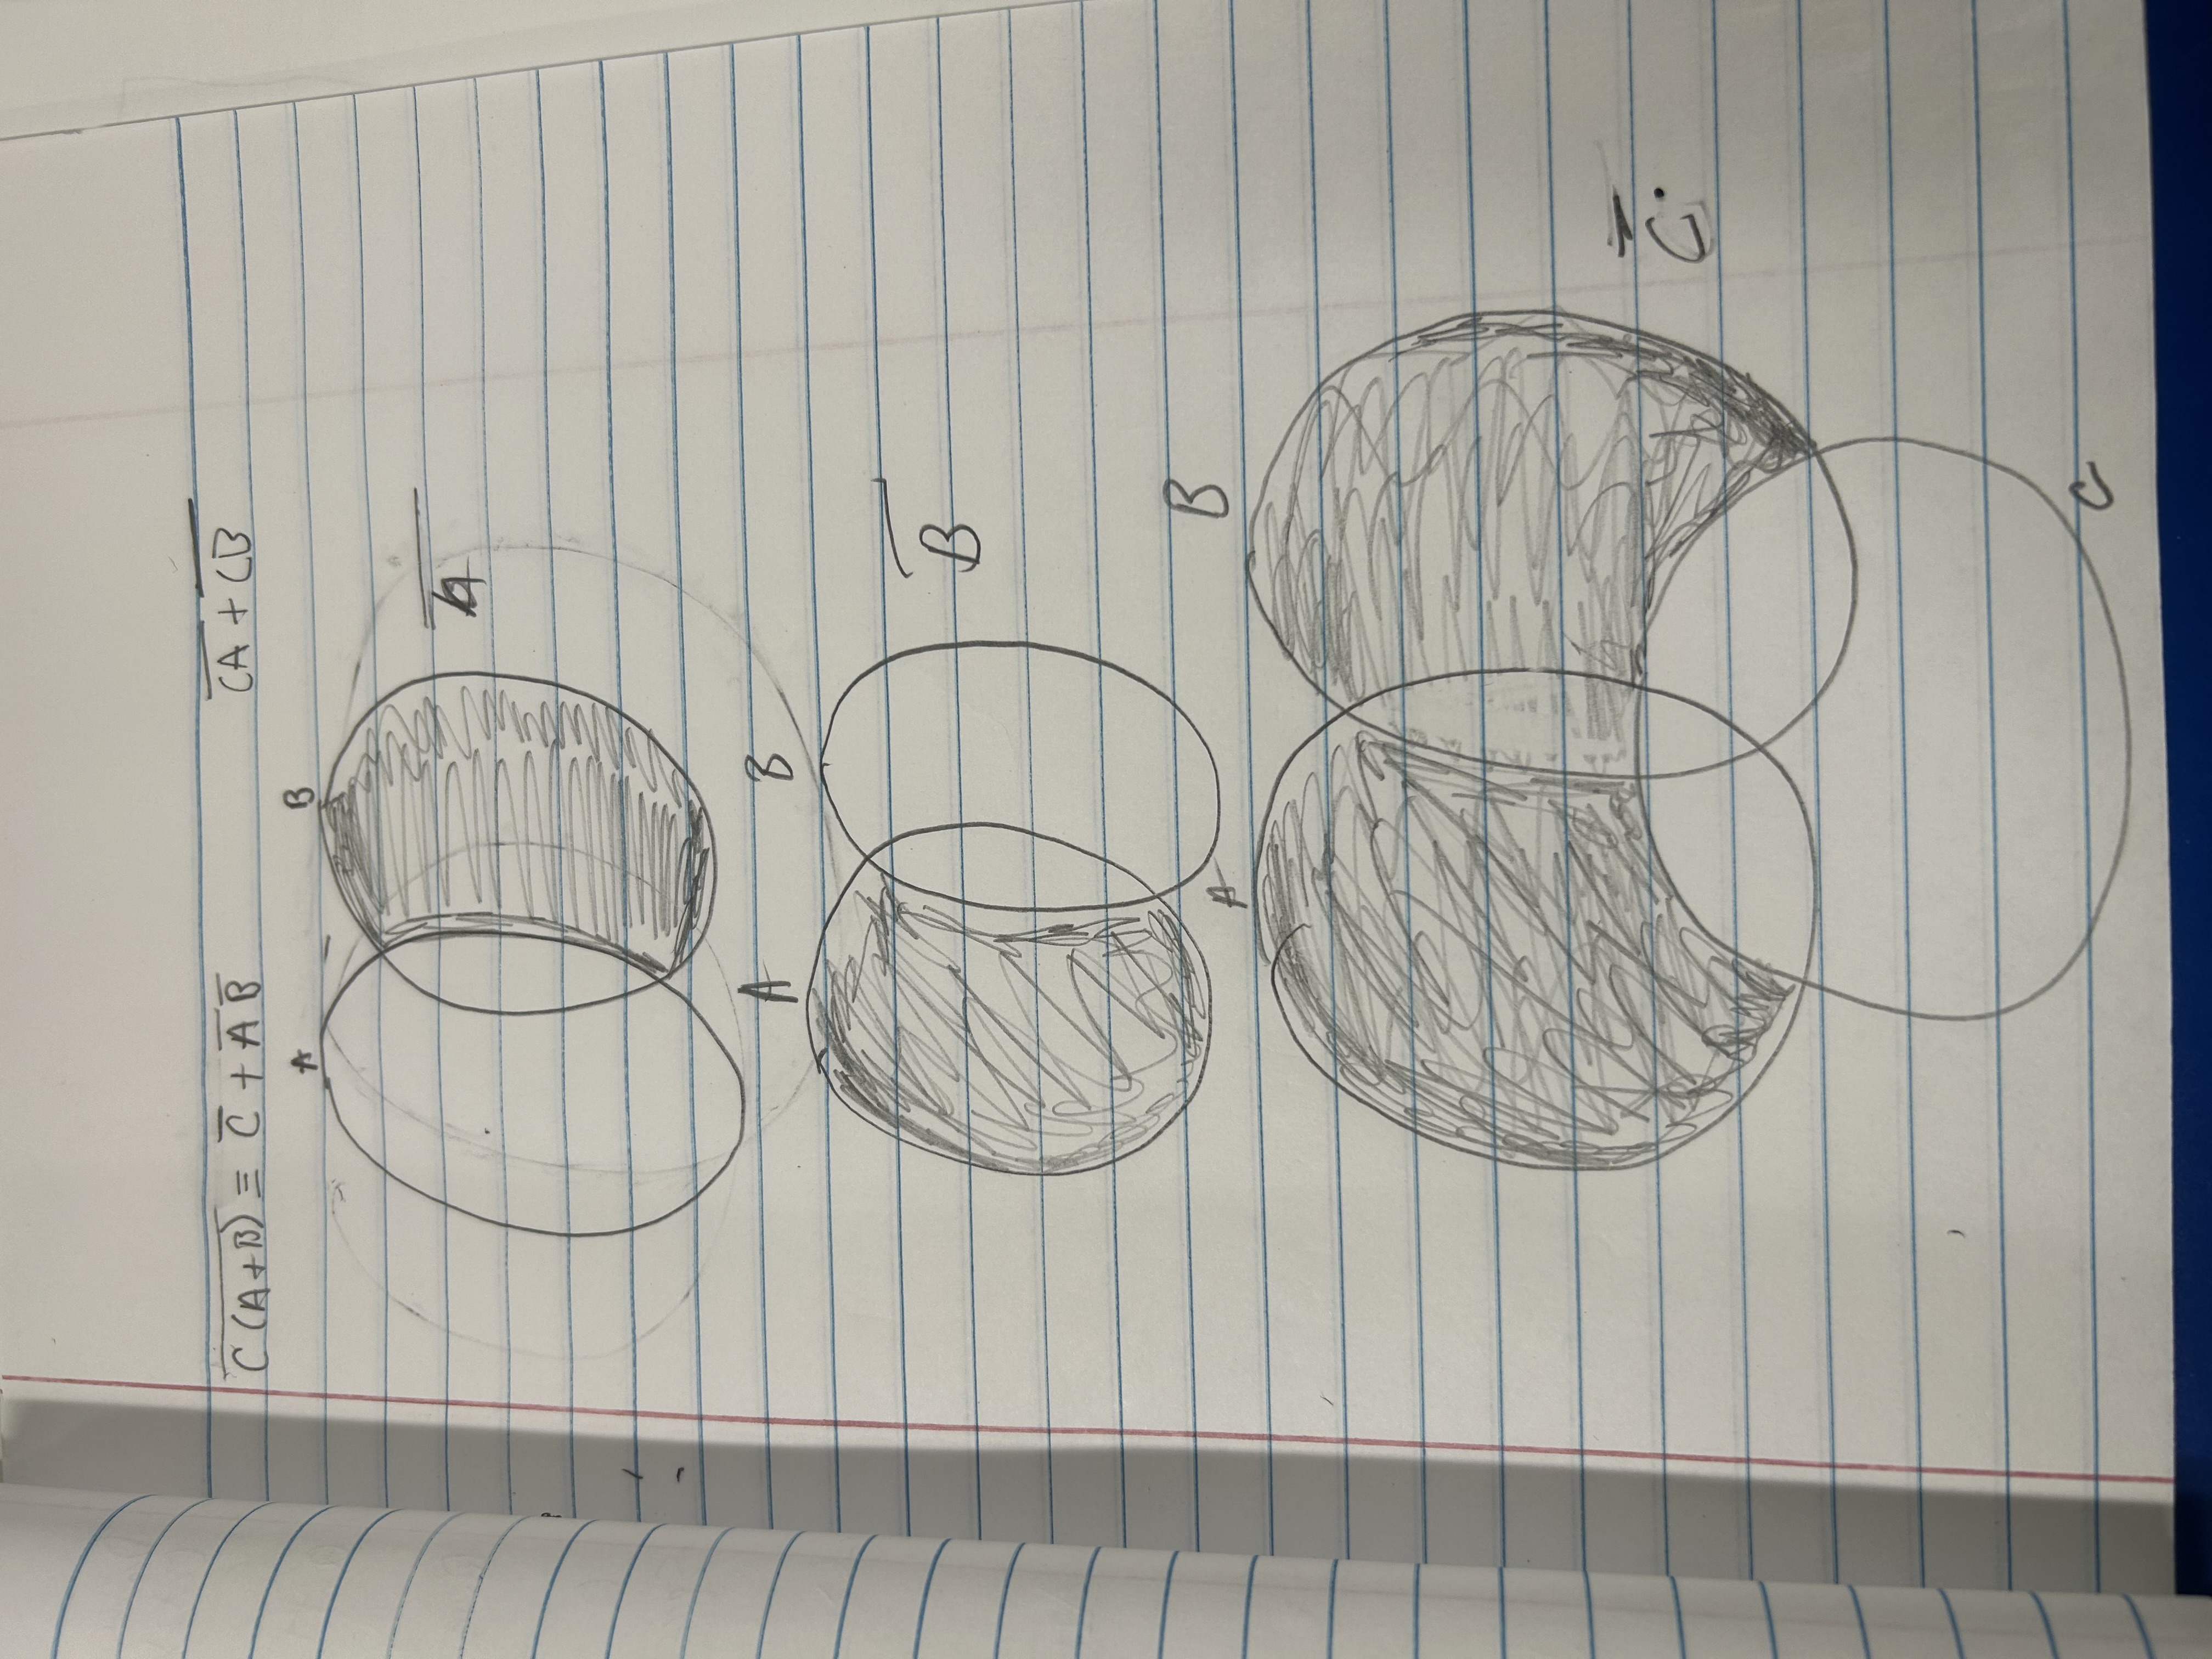 C̅(̅A̅+̅B̅)̅ ≡ C̅ + A̅ B̅
C̅A̅ + C̅B̅
A B
A̅
A B
B̅
A B
C̅
C